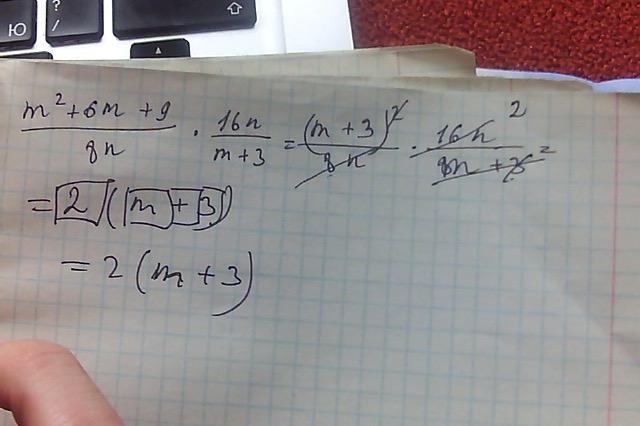 Ю
?
/
m² + 6m + 9 / 8n · 16n / m + 3 = (m + 3)² / 8n · 16n 2 / m + 3 =
= 2 (m + 3)
= 2 (m + 3)